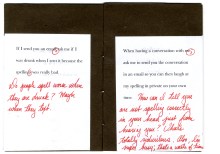 If I send you an email ask me if I
was drunk when I sent it because the
spelling was really bad.
Do people spell worse when
they are drunk? Maybe
when they type.
When having a conversation with me
ask me to send you the conversation
in an email so you can then laugh at
my spelling in private on your own
time.
How can I tell you
are not spelling correctly
in your head just from
hearing you? That's
totally ridiculous. Also,
that's a waste of time